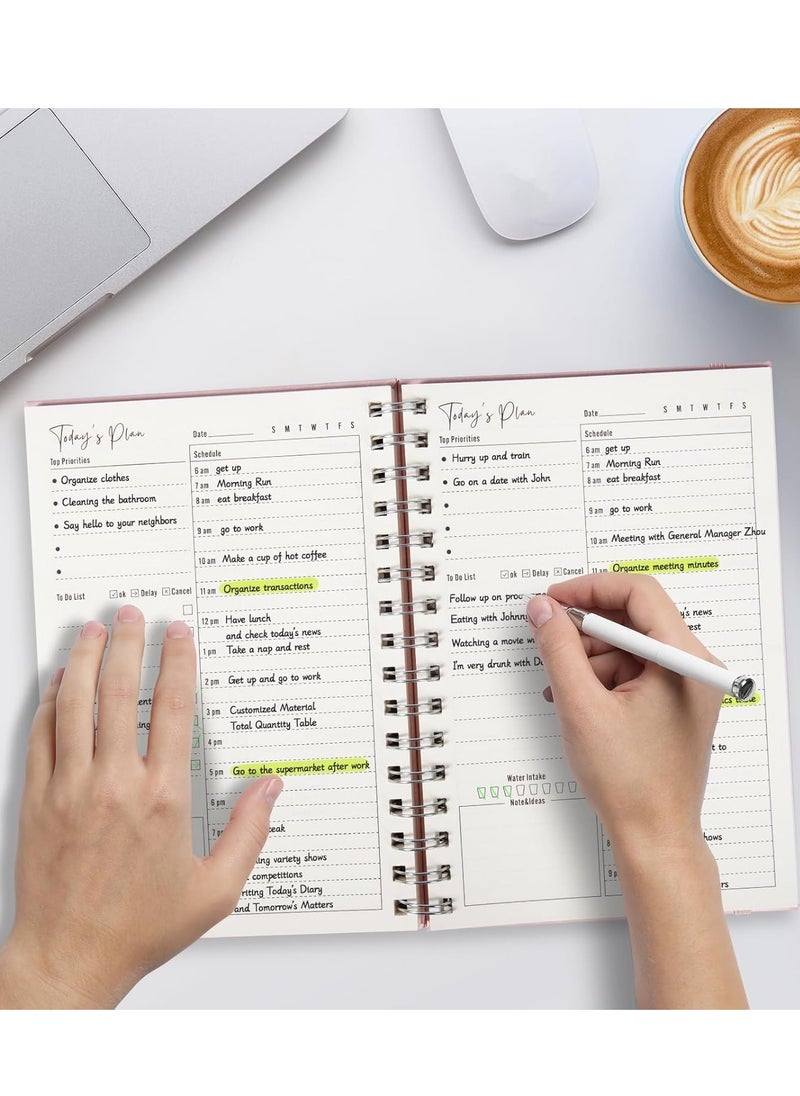 Today's Plan
Date
S M T W T F S
Top Priorities
Organize clothes
Cleaning the bathroom
Say hello to your neighbors
To Do List
ok Delay Cancel
Schedule
6 am get up
7 am Morning Run
8 am eat breakfast
9 am go to work
10 am Make a cup of hot coffee
11 am Organize transactions
12 pm Have lunch
and check today's news
1 pm Take a nap and rest
2 pm Get up and go to work
3 pm Customized Material
Total Quantity Table
4 pm
5 pm Go to the supermarket after work
6 pm
variety shows
competitions
Today's Diary
and Tomorrow's Matters
Today's Plan
Date
S M T W T F S
Top Priorities
Hurry up and train
Go on a date with John
To Do List
ok Delay Cancel
Follow up on
Eating with Johnny
Watching a movie
I'm very drunk with
Water Intake
Note&Ideas
Schedule
6 am get up
7 am Morning Run
8 am eat breakfast
9 am go to work
10 am Meeting with General Manager Zhou
11 am Organize meeting minutes
news
rest
to
shows